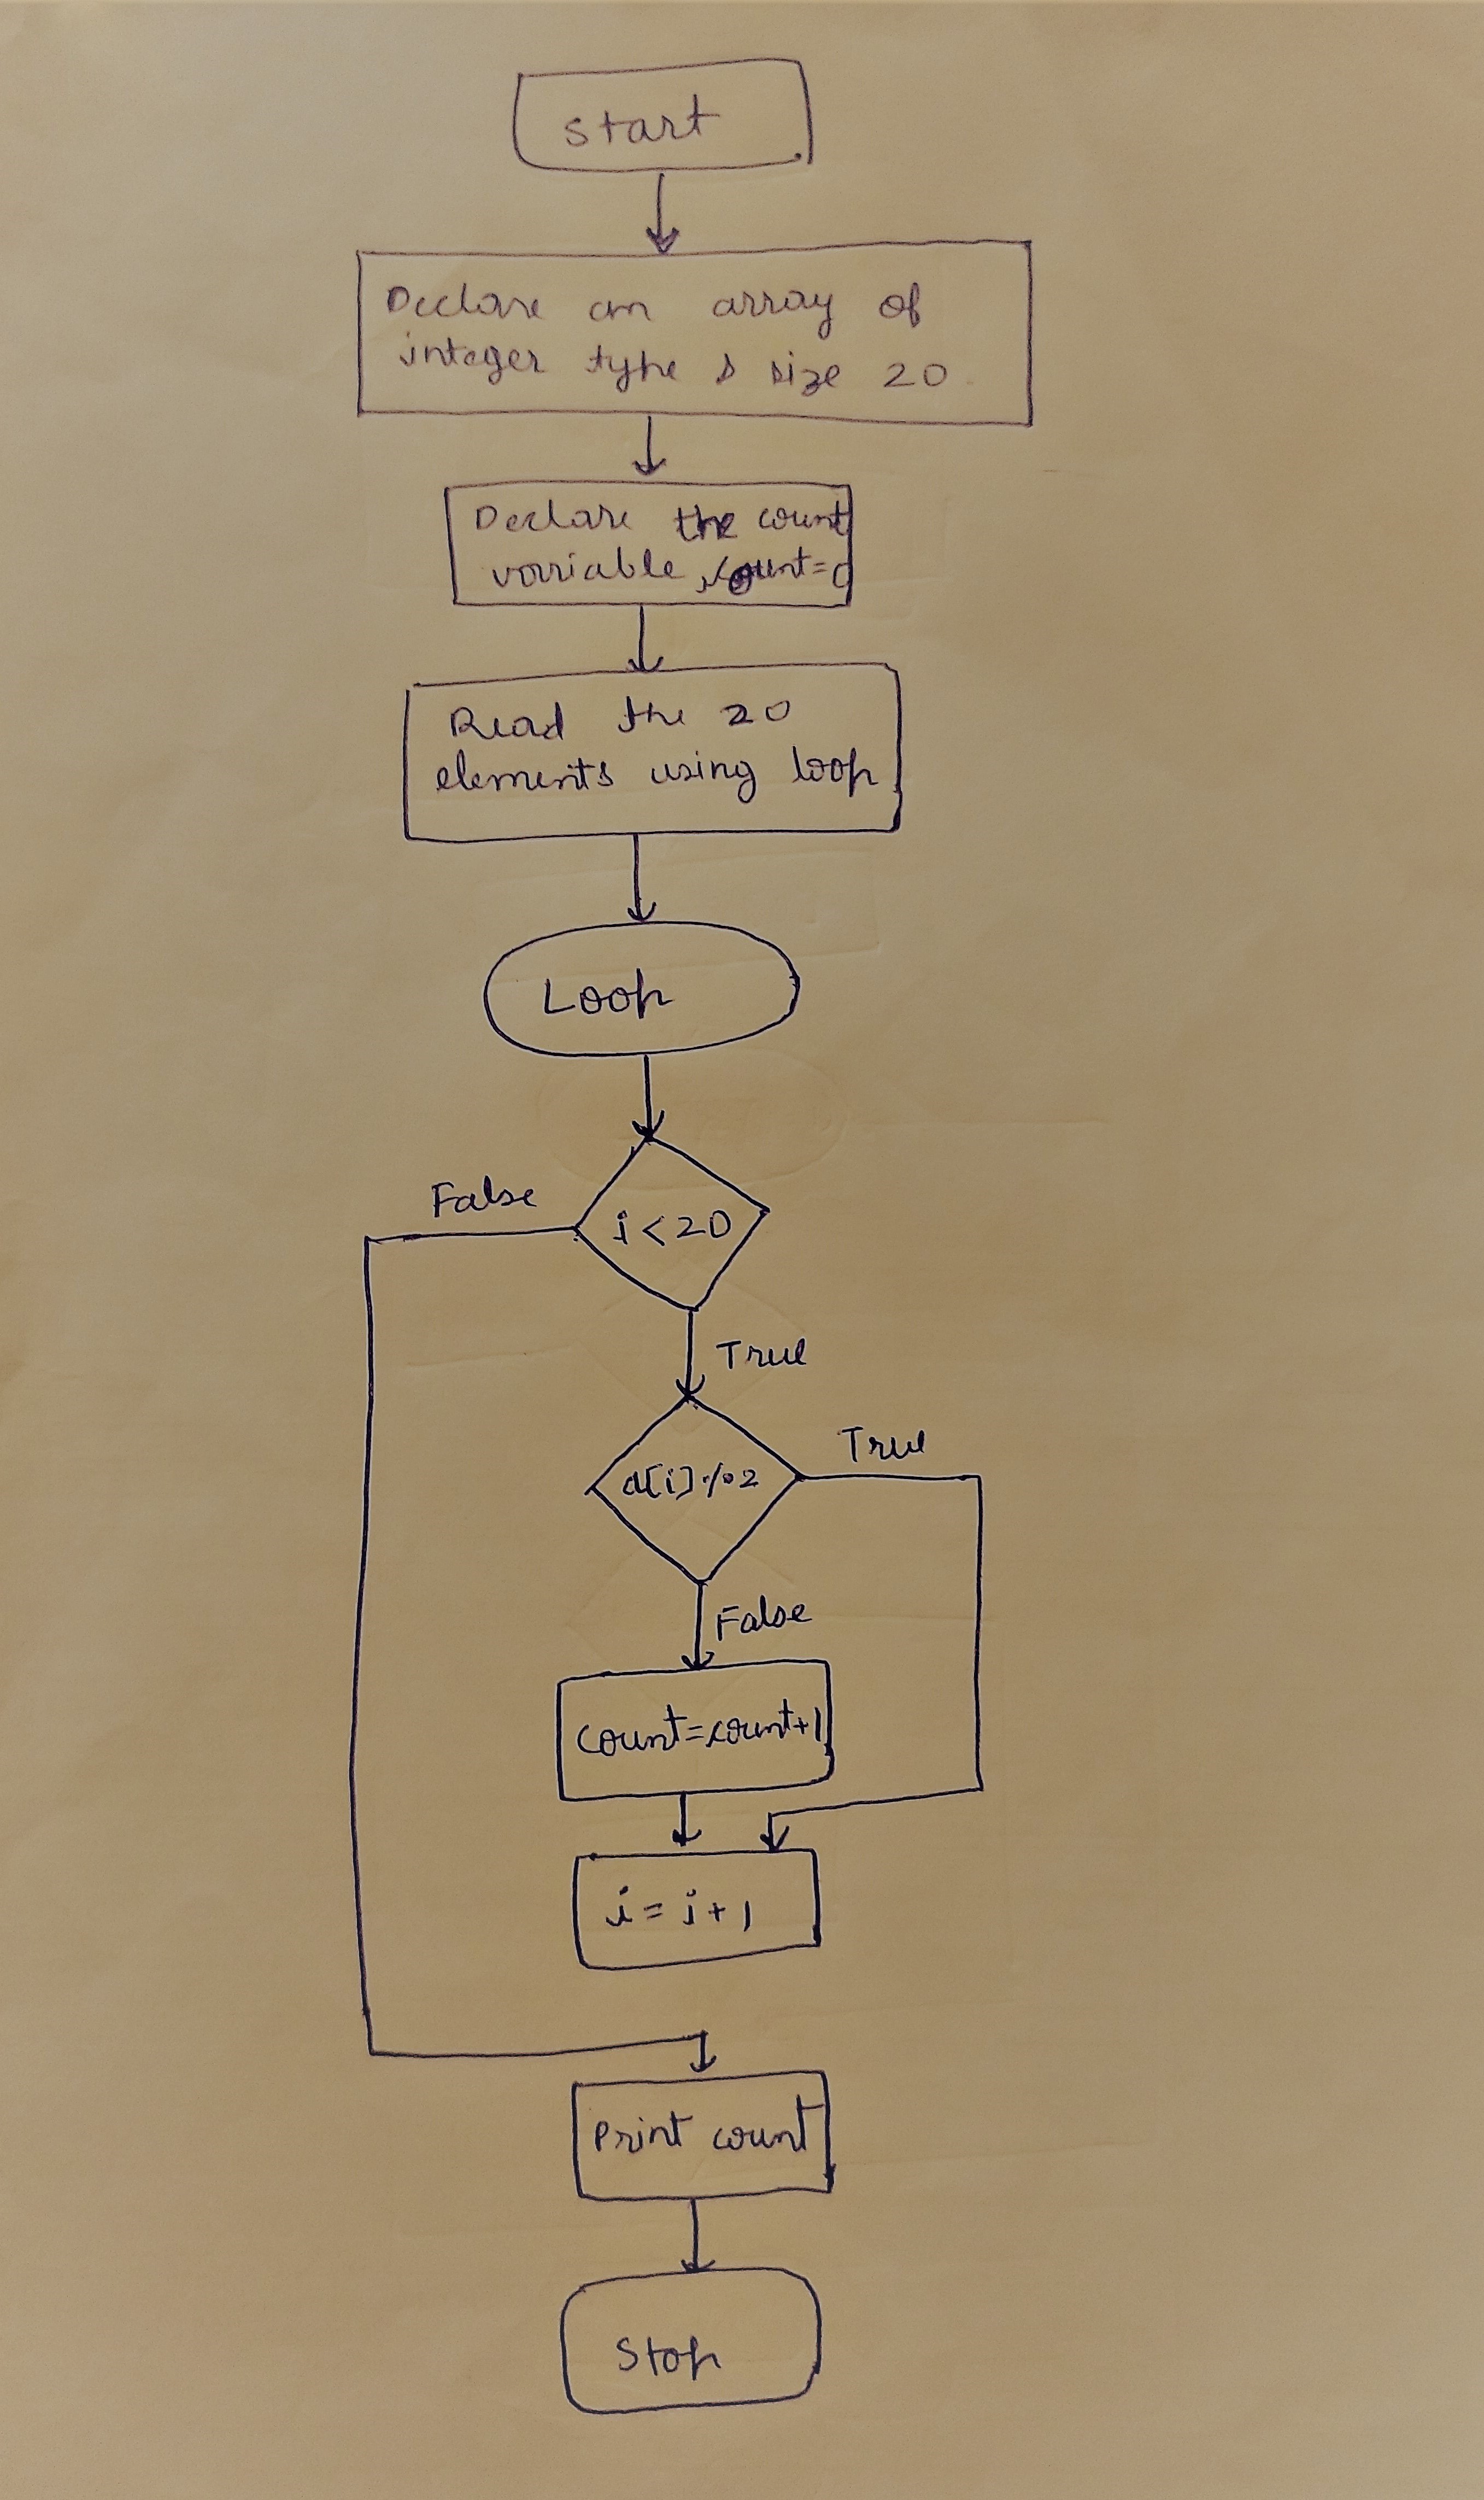 start
Declare an array of
integer type & size 20
Declare the count
variable, count=0
Read the 20
elements using loop
Loop
False
i<20
True
True
a[i]%2
False
count=count+1
i=i+1
Print count
Stop